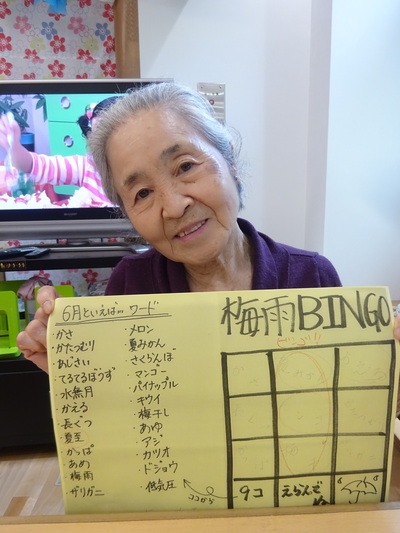 6月といえば… ワード
・かさ
・かたつむり
・あじさい
・てるてるぼうず
・水無月
・かえる
・長ぐつ
・夏至
・かっぱ
・あめ
・梅雨
・ザリガニ
・メロン
・夏みかん
・さくらんぼ
・マンゴー
・パイナップル
・キウイ
・梅干し
・あゆ
・アジ
・カツオ
・ドジョウ
・低気圧
ココから
梅雨BINGO
ビンゴ!!
9コ
えらんでね